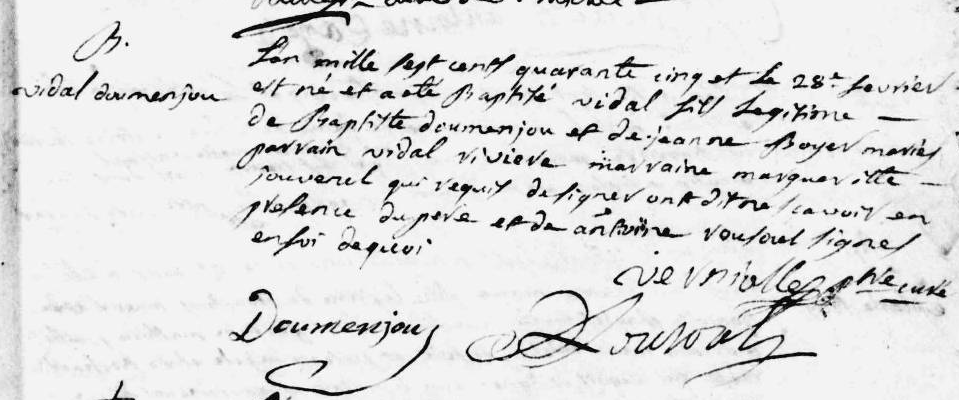 B.
vidal doumenjou
L'an mille sept cents quarante cinq et le 28e fevrier
est né et a eté Baptisé vidal fils legitime
de Baptiste doumenjou et de jeanne Boyer mariés
parrain vidal riviere marraine margueritte
jouverel qui requis de signer ont dit ne scavoir en
presence du pere et de antoine rousoul signes
en foi de quoi
Verniolle ptre curé
Doumenjou
Rousoul